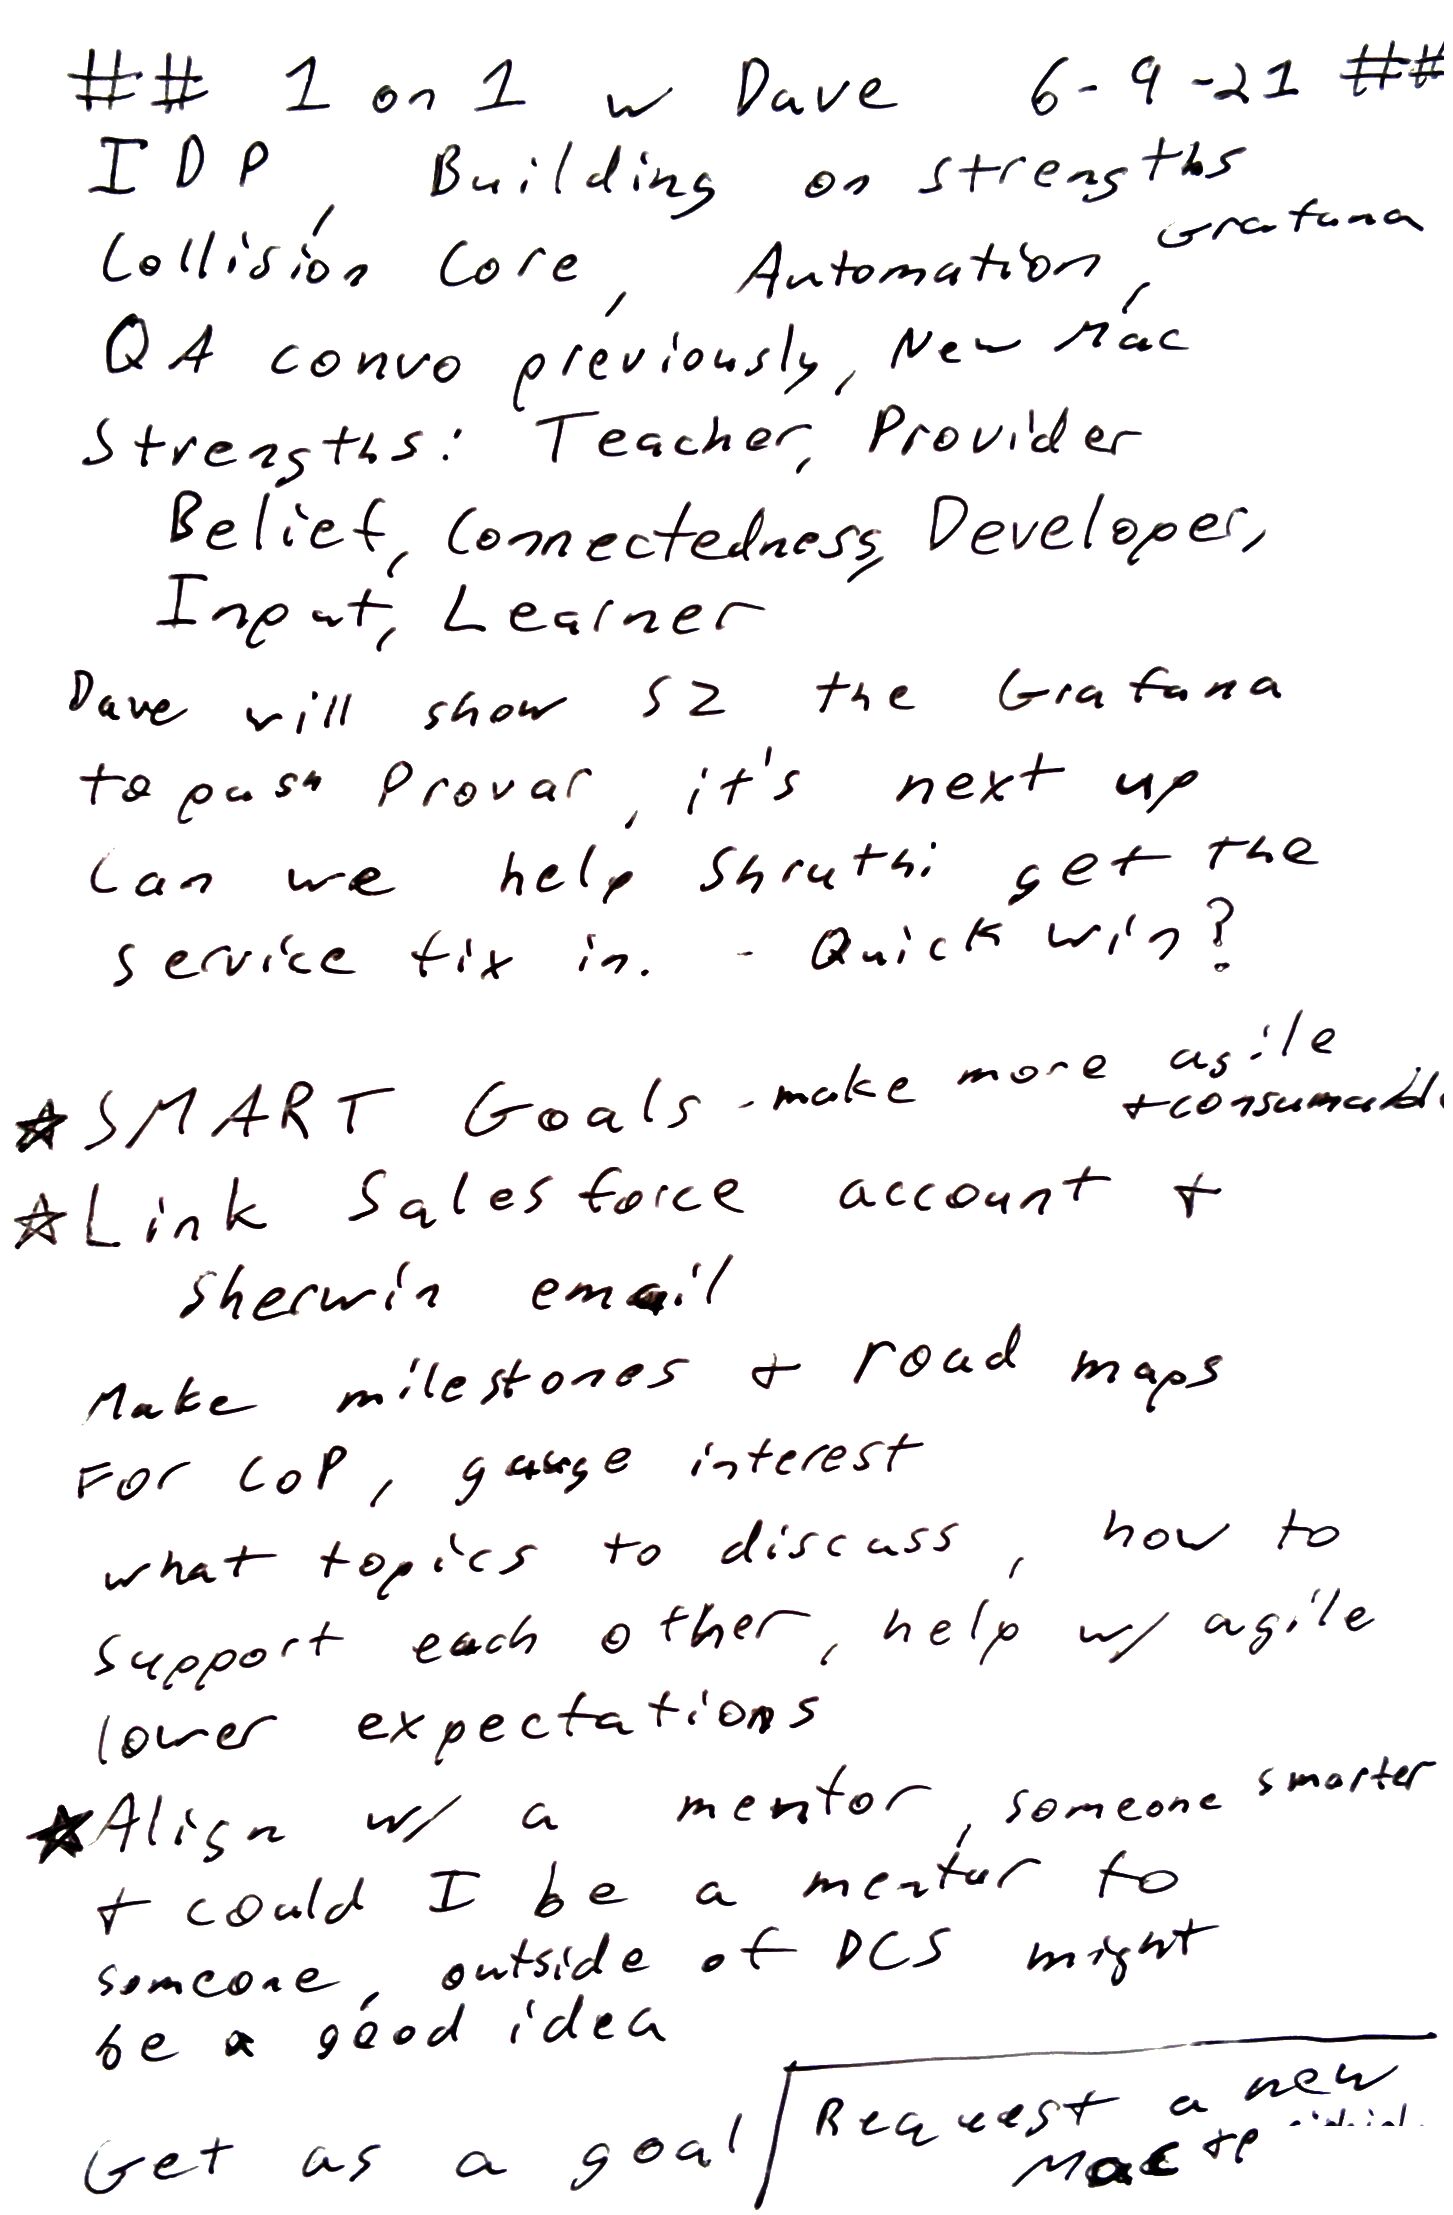 ## 1 on 1 w Dave 6-9-21 ##
IDP, Building on strengths
Collision Core, Automation, Grafana
QA convo previously, New Mac
Strengths: Teacher, Provider
Belief, Connectedness, Developer,
Input, Learner
Dave will show S2 the Grafana
to push Provar, it's next up
Can we help Shruthi get the
service fix in. - Quick win?
☆ SMART Goals - make more agile
+ consumable
☆ Link Salesforce account +
Sherwin email
Make milestones + road maps
For CoP, gauge interest
what topics to discuss, how to
support each other, help w/ agile
lower expectations
☆ Align w/ a mentor, someone smarter
+ could I be a mentor to
someone, outside of DCS might
be a good idea
Get as a goal
Request a new
Mac